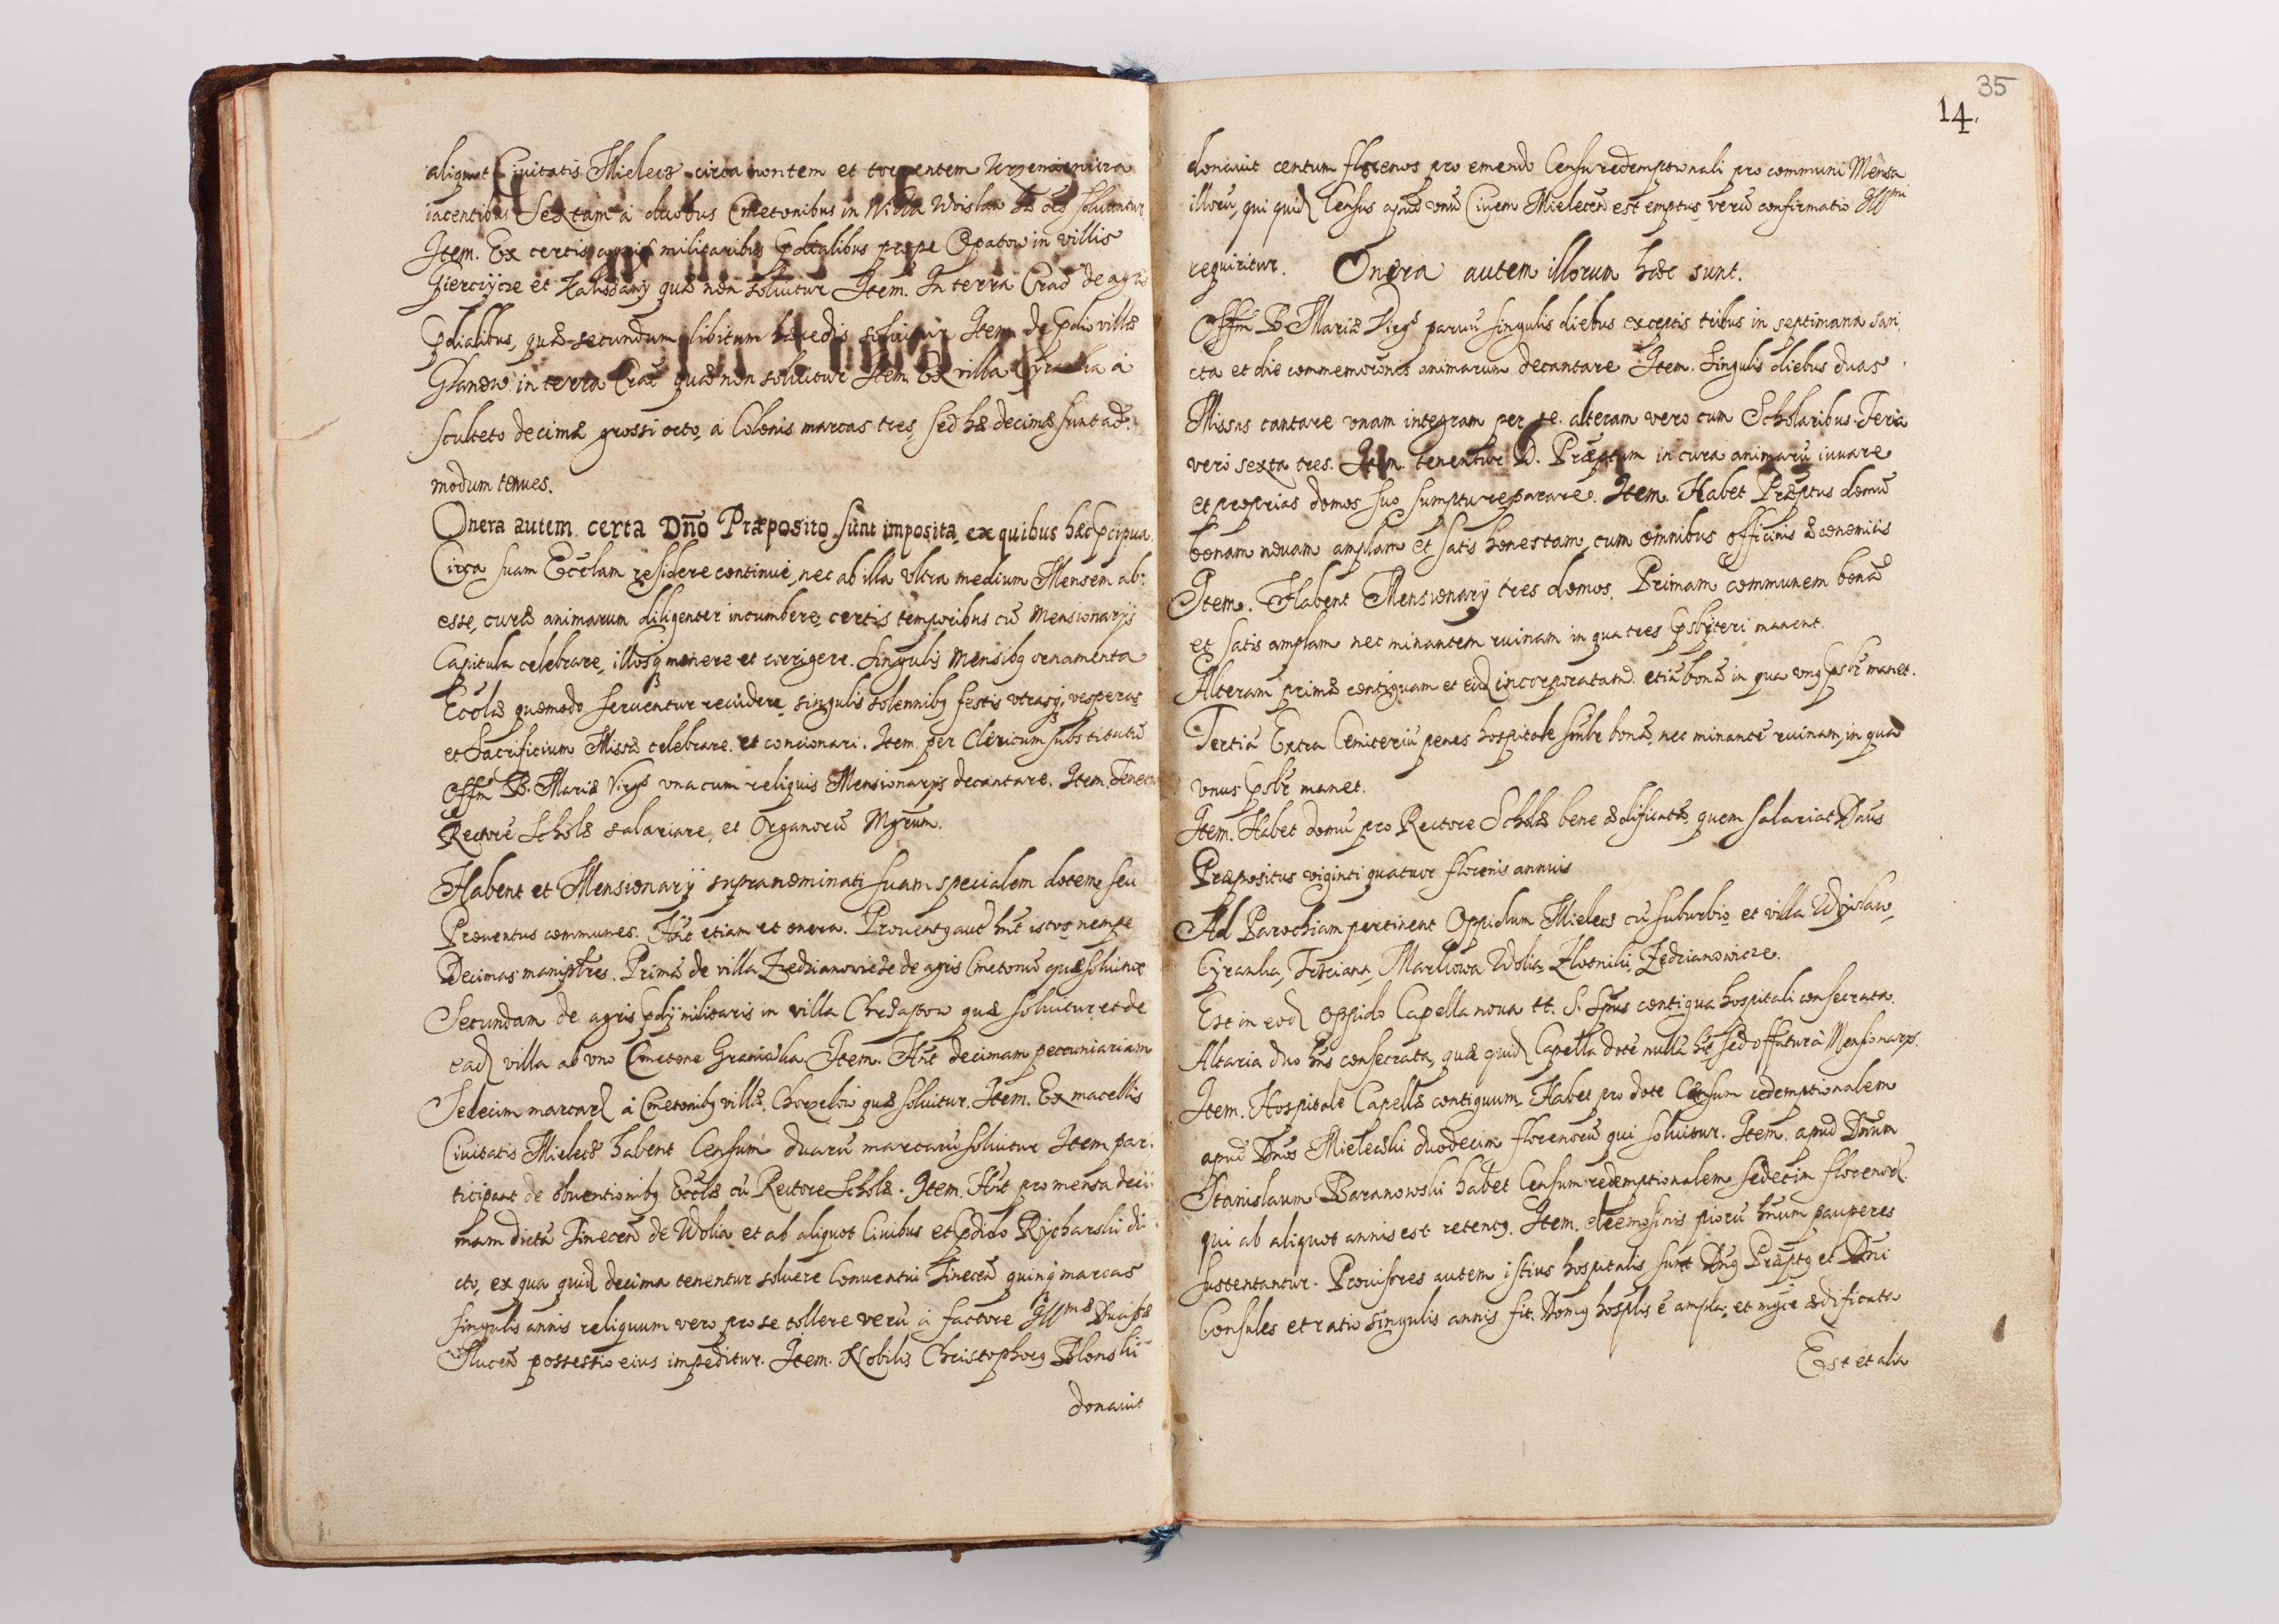 aliquot Ciuitatis Mielecz circa montem et torrentem
iacentibus Sextam á duobus Cmetonibus in Villa Woislaw hæ oēs soluuntur
Item. Ex certis agris militaribus ꝑdialibus prope Opatow in villis
et quæ non soluitur Item. In terra Crac̄ de agris
ꝑdialibus, quæ secundum libitum hæredis soluitur Item de ꝑdio villæ
Glanow in terra Crac̄ quæ non soluitur Item Ex villa Cyranka á
sculteto decimæ grossi octo, á Colonis marcas tres, sed hæ decimæ sunt ad-
modum tenues.
Onera autem certa Dn̄o Præposito sunt imposita, ex quibus hæc p̄cipua
Circa suam Eccłam residere continué, nec ab illa vltra medium Mensem ab:
esse, curæ animarum diligenter incumbere, certis temporibus cū Mensionarijs
Capitula celebrare, illosq3 monere et corrigere. Singulis Mensibꝯ ornamenta
Eccłæ quomodo seruentur reuidere, singulis solennibꝯ festis vtrasq3 vesperas
et Sacrificium Missæ celebrare et concionari. Item per Clericum substitutū
Offm̄ B. Mariæ Virgs vna cum reliquis Mensionarijs decantare. Item Tenetur
Rectorē Scholæ salariare, et Organorū Mgr̄um.
Habent et Mensionarÿ supranominati suam specialem dotem seu
Prouentus communes. Hn̄t etiam et onera. Prouentꝯ aut̄ hn̄t istos nempe
Decimas manip̄les. Primā de villa Zedzianowicze de agris Cmetonū quæ soluitur
Secundam de agris p̄dij militaris in villa Chrząstow quæ soluitur et de
ead villa ab vno Cmetone Item. Hn̄t decimam pecuniariam
Sedecim marcar á Cmetonibꝯ villæ Chorzelow quæ soluitur. Item. Ex macellis
Ciuitatis Mielecz habent Censum duarū marcarū soluitur Item par:
ticipant de obuentionibꝯ Eccłæ cū Rectore Scholæ. Item. Hn̄t pro mensa deci:
mam dictā Tinecen̄ de Wolia et ab aliquot Ciuibus et p̄dio Rycharski di:
cto, ex qua quid decima tenentur soluere Conuentui Tinecen̄ quinq3 marcas
singulis annis reliquum vero pro se tollere verū á factore Illmæ Ducissæ
Slucen̄ possessio eius impeditur. Item. Nobilis Christophorꝯ Blonski
donauit
35
14.
donauit centum florenos pro emendo Censu redemptionali pro communi Mensa
illorū, qui quid Census apud vnū Ciuem Mielecen̄ est emptus, verū confirmatio Illmi
requiritur. Onera autem illorum hæc sunt.
Offm̄ B Mariæ Virgs paruū singulis diebus exceptis tribus in septimana san:
cta et die commemorōnis animarum decantare Item. Singulis diebus duas
Missas cantare vnam integram per se. alteram vero cum Scholaribus. Feria
vero sexta tres. Item. tenentur D. Præp̄tum in cura animarū iuuare
et proprias domos suo sumptu reparare. Item. Habet Præp̄tus domū
bonam nouam amplam et satis honestam, cum omnibus officinis œconomiis
Item. Habent Mensionarÿ tres domos. Primam communem bonā
et satis amplam nec minantem ruinam in qua tres p̄sbiteri manent.
Alteram primæ contiguam et eid incorporatam. etiā bonā in qua vnꝯ p̄sbr̄ manet.
Tertiā Extra Cemiteriū penes hospitale simłr bonā, nec minantē ruinam, in qua
vnus p̄sbr̄ manet.
Item. Habet domū pro Rectore Scholæ bene ædificatā, quem salariat Dn̄us
Præpositus viginti quatuor florenis annuis
Ad Parochiam pertinent Oppidum Mielecz cū suburbio et villa Woyslaw,
Cyranka, Trzciana, Markowa Wolia, Zlotniki, Zedzianowicze.
Est in eod oppido Capella noua tt. S. Spūs contigua hospitali consecrata.
Altaria duo hn̄s consecrata, quæ quid Capella dotē nullā hēt sed offatur à Mensionarijs.
Item. Hospitale Capellæ contiguum. Habet pro dote Censum redemptionalem
apud Dn̄os Mielecski duodecim florenorū qui soluitur. Item. apud Dn̄um
Stanislaum Baranowski habet Censum redemptionalem sedecim florenor
qui ab aliquot annis est retentꝯ. Item. eleemosinis piorū hn̄um pauperes
sustentantur. Prouisores autem istius hospitalis sunt Dn̄ꝯ Præp̄tꝯ et Dn̄i
Consules et ratio singulis annis fit. Domꝯ hosp̄lis ē ampla, et ædificata
Est et alia